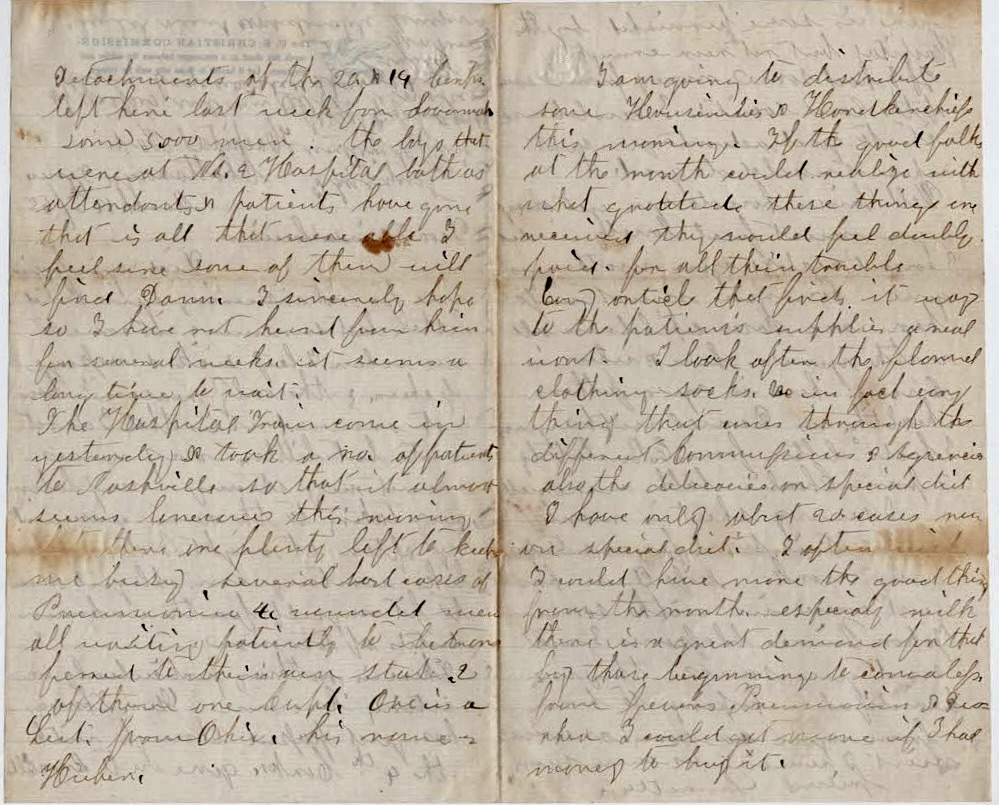 Detachments of the 20 & 14 Center
left here last week for Savannah
some 5,000 men. the boys that
were at No. 2 Hospital both as
attendants & patients have gone
that is all that were able I
feel sure some of them will
find Dann. I sincerely hope
so I have not heard from him
for several weeks. it seems a
long time to wait.
The Hospital Train come in
yesterday & took a no. of patients
to Nashville so that it almost
seems lonesome this morning
but there are plenty left to keep
me busy several bad cases of
Pneumonia 4 wounded men
all waiting patiently to be trans
fered to their own state. 2
of them are Capt. One is a
Leut. from Ohio. his name
Huber.
I am going to distribute
some Housewifes & Handkerchiefs
this morning. If the good folks
at the north could realize with
what gratitude these things are
received they would feel doubly
paid. for all their trouble
Evry article that finds it way
to the patients supplies a real
want. I look after the flannel
clothing socks. &c in fact evry
thing that comes through the
different Commissions & Agencies
also the delicacies or special diet
I have only about 20 cases now
on special diet. I often wish
I could have more the good things
from the north. especialy milk
there is a great demand for that
by those beginning to convalesce
from fevers Pneumonia &
when I could get some if I had
money to buy it.
U.S. CHRISTIAN COMMISSION